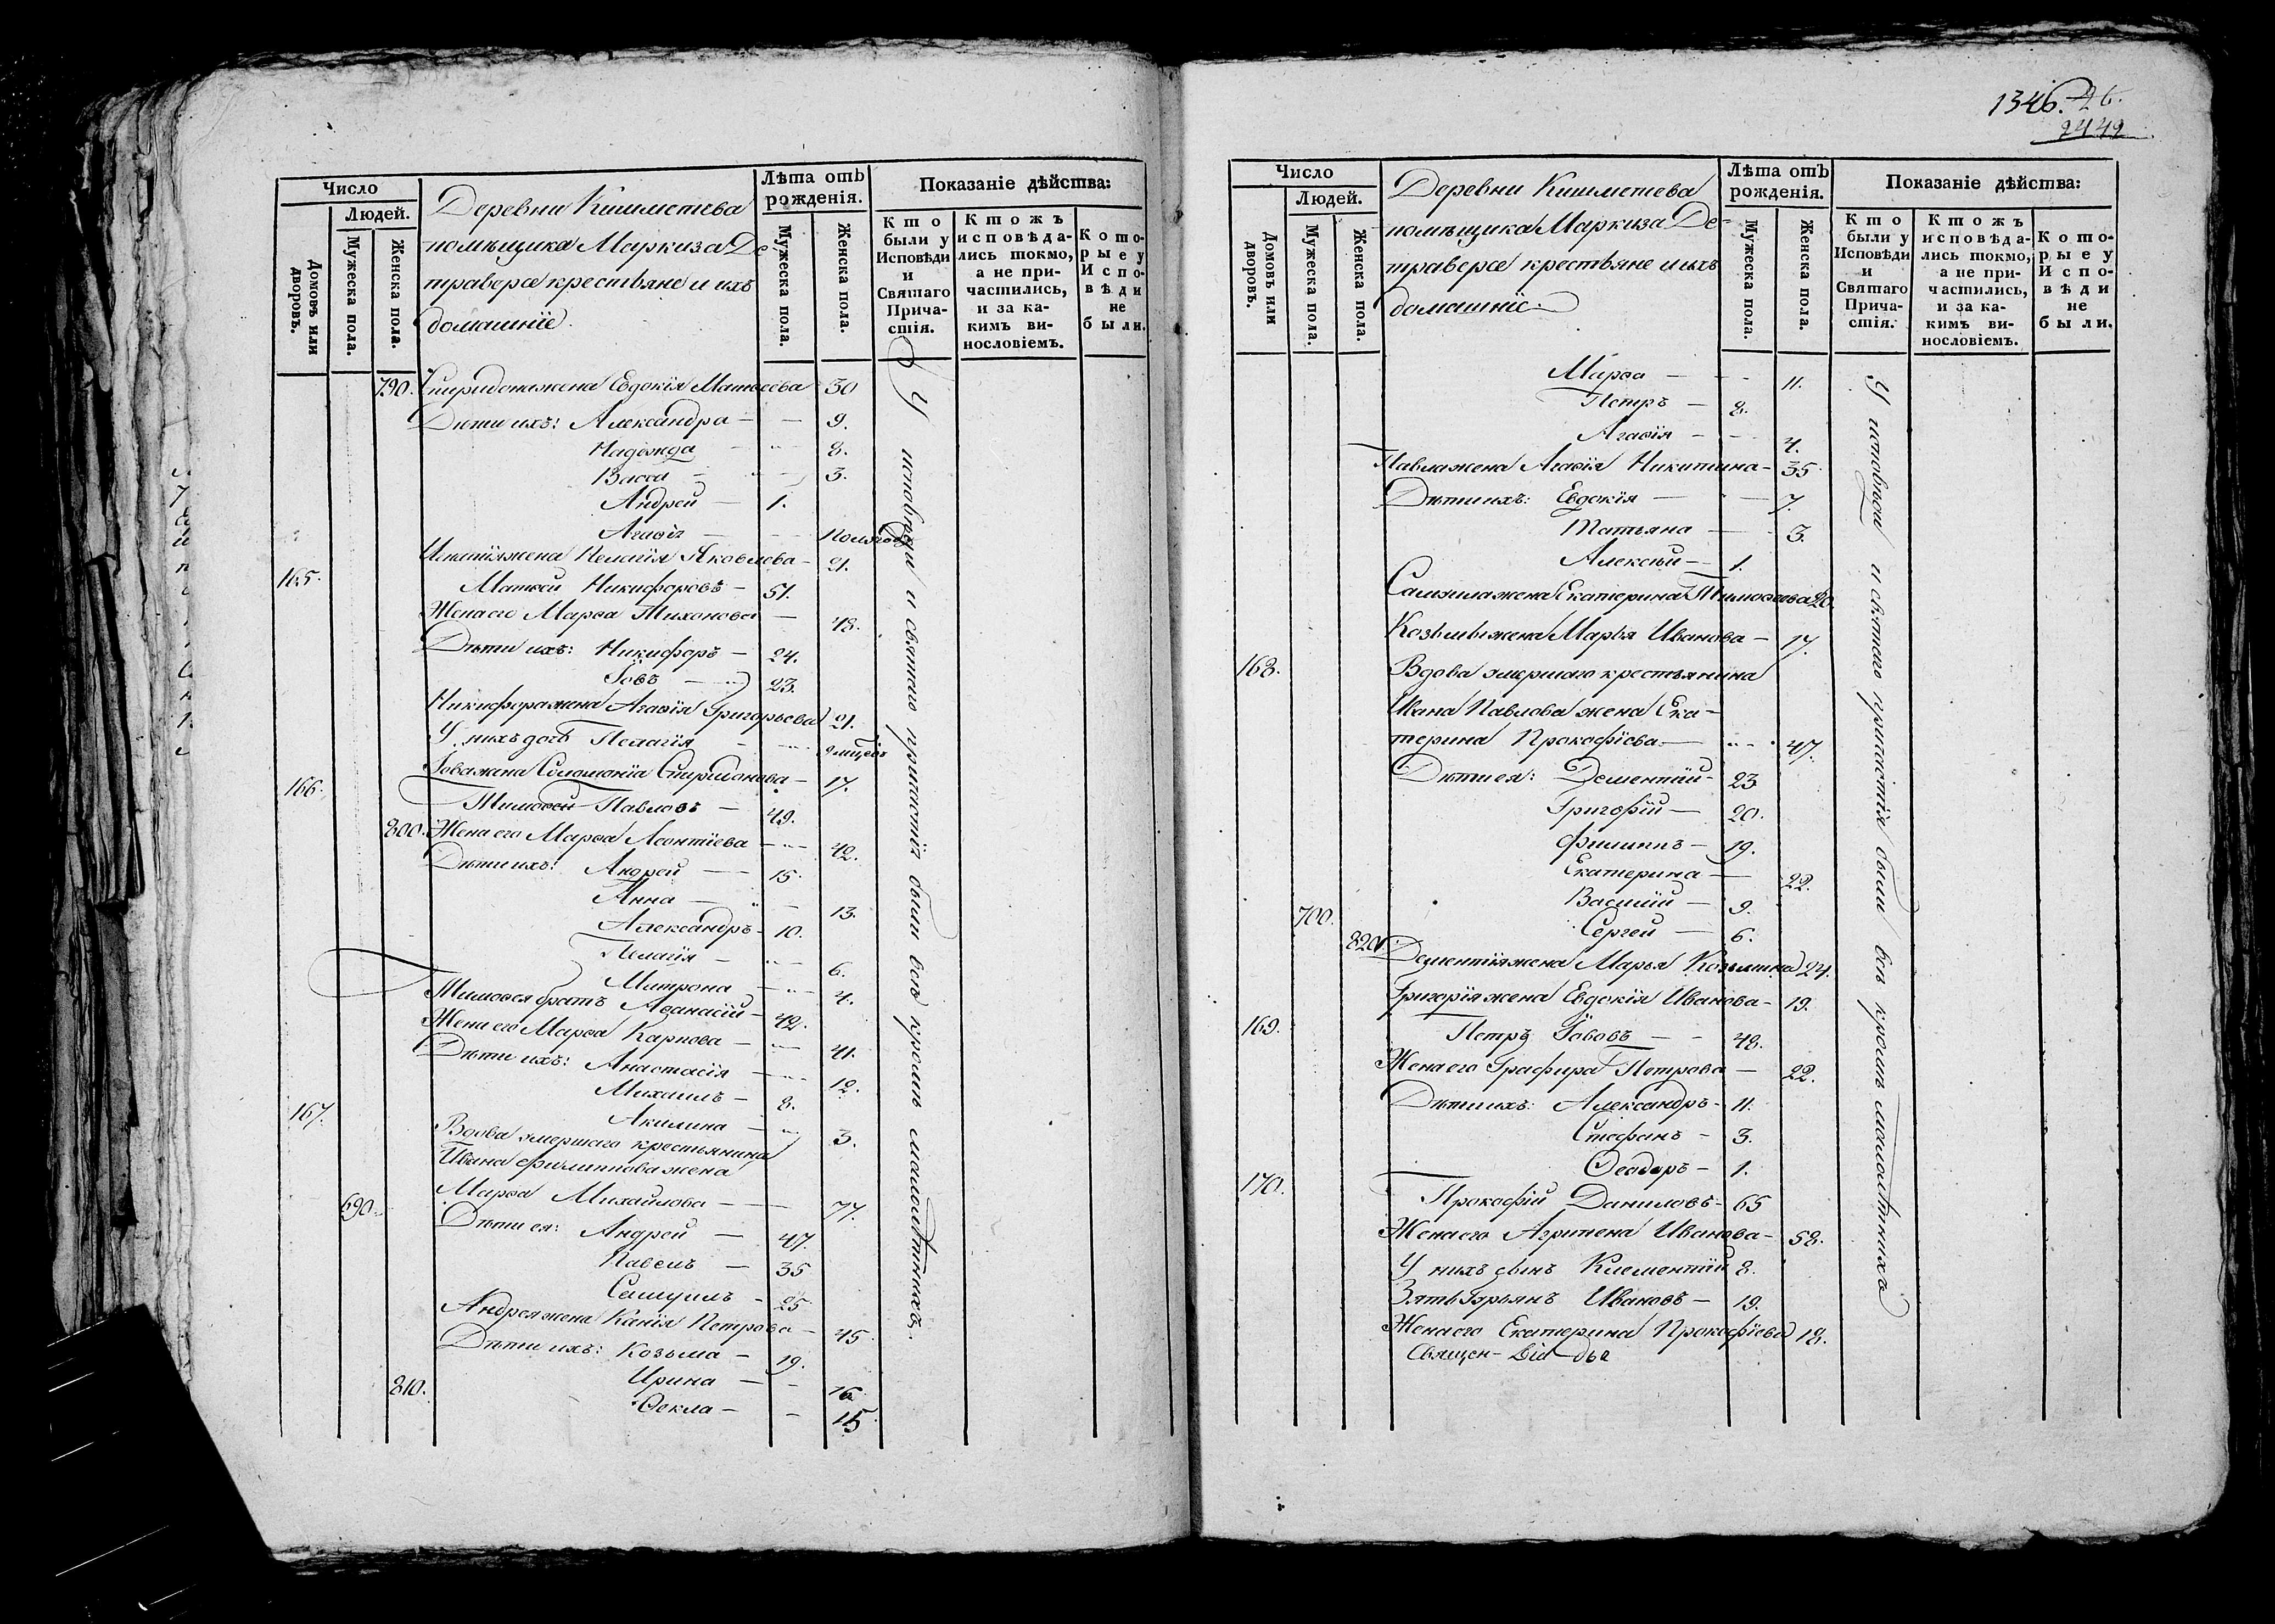 Число
Людей.
Домовъ или дворовъ.
Мужеска пола.
Женска пола.
Деревни Кишметева
помѣщика Маркиза Де
траверсе крестьяне и ихъ
домашніе.
Лѣта отъ рожденія.
Мужеска пола.
Женска пола.
Показаніе дѣйства:
Кто были у Исповѣди и Святаго Причастія.
Ктожъ исповѣдались токмо, а не причастились, и за какимъ винословіемъ.
Которые у Исповѣди не были.
790. Спиридона жена Евдокія Матвеева 30
Дети ихъ: Александра — 9.
Надежда — 8.
Васса — 3.
Андрей — 1.
Агафія — полгода
Игнатія жена Пелагія Яковлева — 21.
165. Матвей Никифоровъ — 51.
Жена его Марфа Тихонова — 48.
Дѣти ихъ: Никифоръ — 24.
Іовъ — 23.
Никифора жена Агафія Григорьева 21.
У нихъ дочь Пелагія — 9 мѣсяцъ
Іова жена Соломонія Спиридонова — 17.
166. Тимофей Павловъ — 49.
800. Жена его Марфа Леонтіева — 42.
Дѣти ихъ: Андрей — 15.
Анна — 13.
Александръ — 10.
Пелагія — 6.
Митрона — 4.
Тимофея братъ Афанасій — 42.
Жена его Марфа Карпова — 41.
Дѣти ихъ: Анастасія — 12.
Михаилъ — 8.
Акилина — 3.
167. Вдова умершаго крестьянина
Ивана Филиппова жена
Марфа Михайлова — 77.
690. Дѣти ея: Андрей — 47.
Павелъ — 35
Самуилъ — 25
Андрея жена Ксенія Петрова — 45
Дѣти ихъ: Козьма — 19.
Ирина — 16.
810. Фекла — 15
У исповѣди и святаго причастія были всѣ кромѣ малолѣтнихъ.
1346. 26.
2442
Число
Людей.
Домовъ или дворовъ.
Мужеска пола.
Женска пола.
Деревни Кишметева
помѣщика Маркиза Де-
траверсе крестьяне и ихъ
домашніе
Лѣта отъ рожденія.
Мужеска пола.
Женска пола.
Показаніе дѣйства:
Кто были у Исповѣди и Святаго Причастія.
Ктожъ исповѣдались токмо, а не причастились, и за какимъ винословіемъ.
Которые у Исповѣди не были.
Марфа — 11.
Петръ — 8.
Агафія — 4.
Павла жена Агафія Никитина — 35
Дѣти ихъ: Евдокія — 7.
Татьяна — 3.
Алексѣй — 1.
Самуила жена Екатерина Тимофеева 20.
Козьмы жена Марья Иванова — 17.
168. Вдова умершаго крестьянина
Ивана Павлова жена Ека-
терина Прокофіева — 47.
Дѣти ея: Дементій — 23
Григорій — 20.
Филиппъ — 19.
Екатерина — 22.
Василій — 9.
700. Сергей — 6.
820. Дементія жена Марья Козьмина 24.
Григорія жена Евдокія Иванова — 19.
169. Петръ Іововъ — 48.
Жена его Графира Петрова — 22.
Дѣти ихъ: Александръ — 11.
Стефанъ — 3.
Феодоръ — 1.
170. Прокофій Даниловъ — 65
Жена его Агрипена Иванова — 58.
У нихъ сынъ Клементій 8.
Зять Гурьянъ Ивановъ — 19.
Жена его Екатерина Прокофіева 18.
Священ-
У исповѣди и святаго причастія были всѣ кромѣ малолѣтнихъ